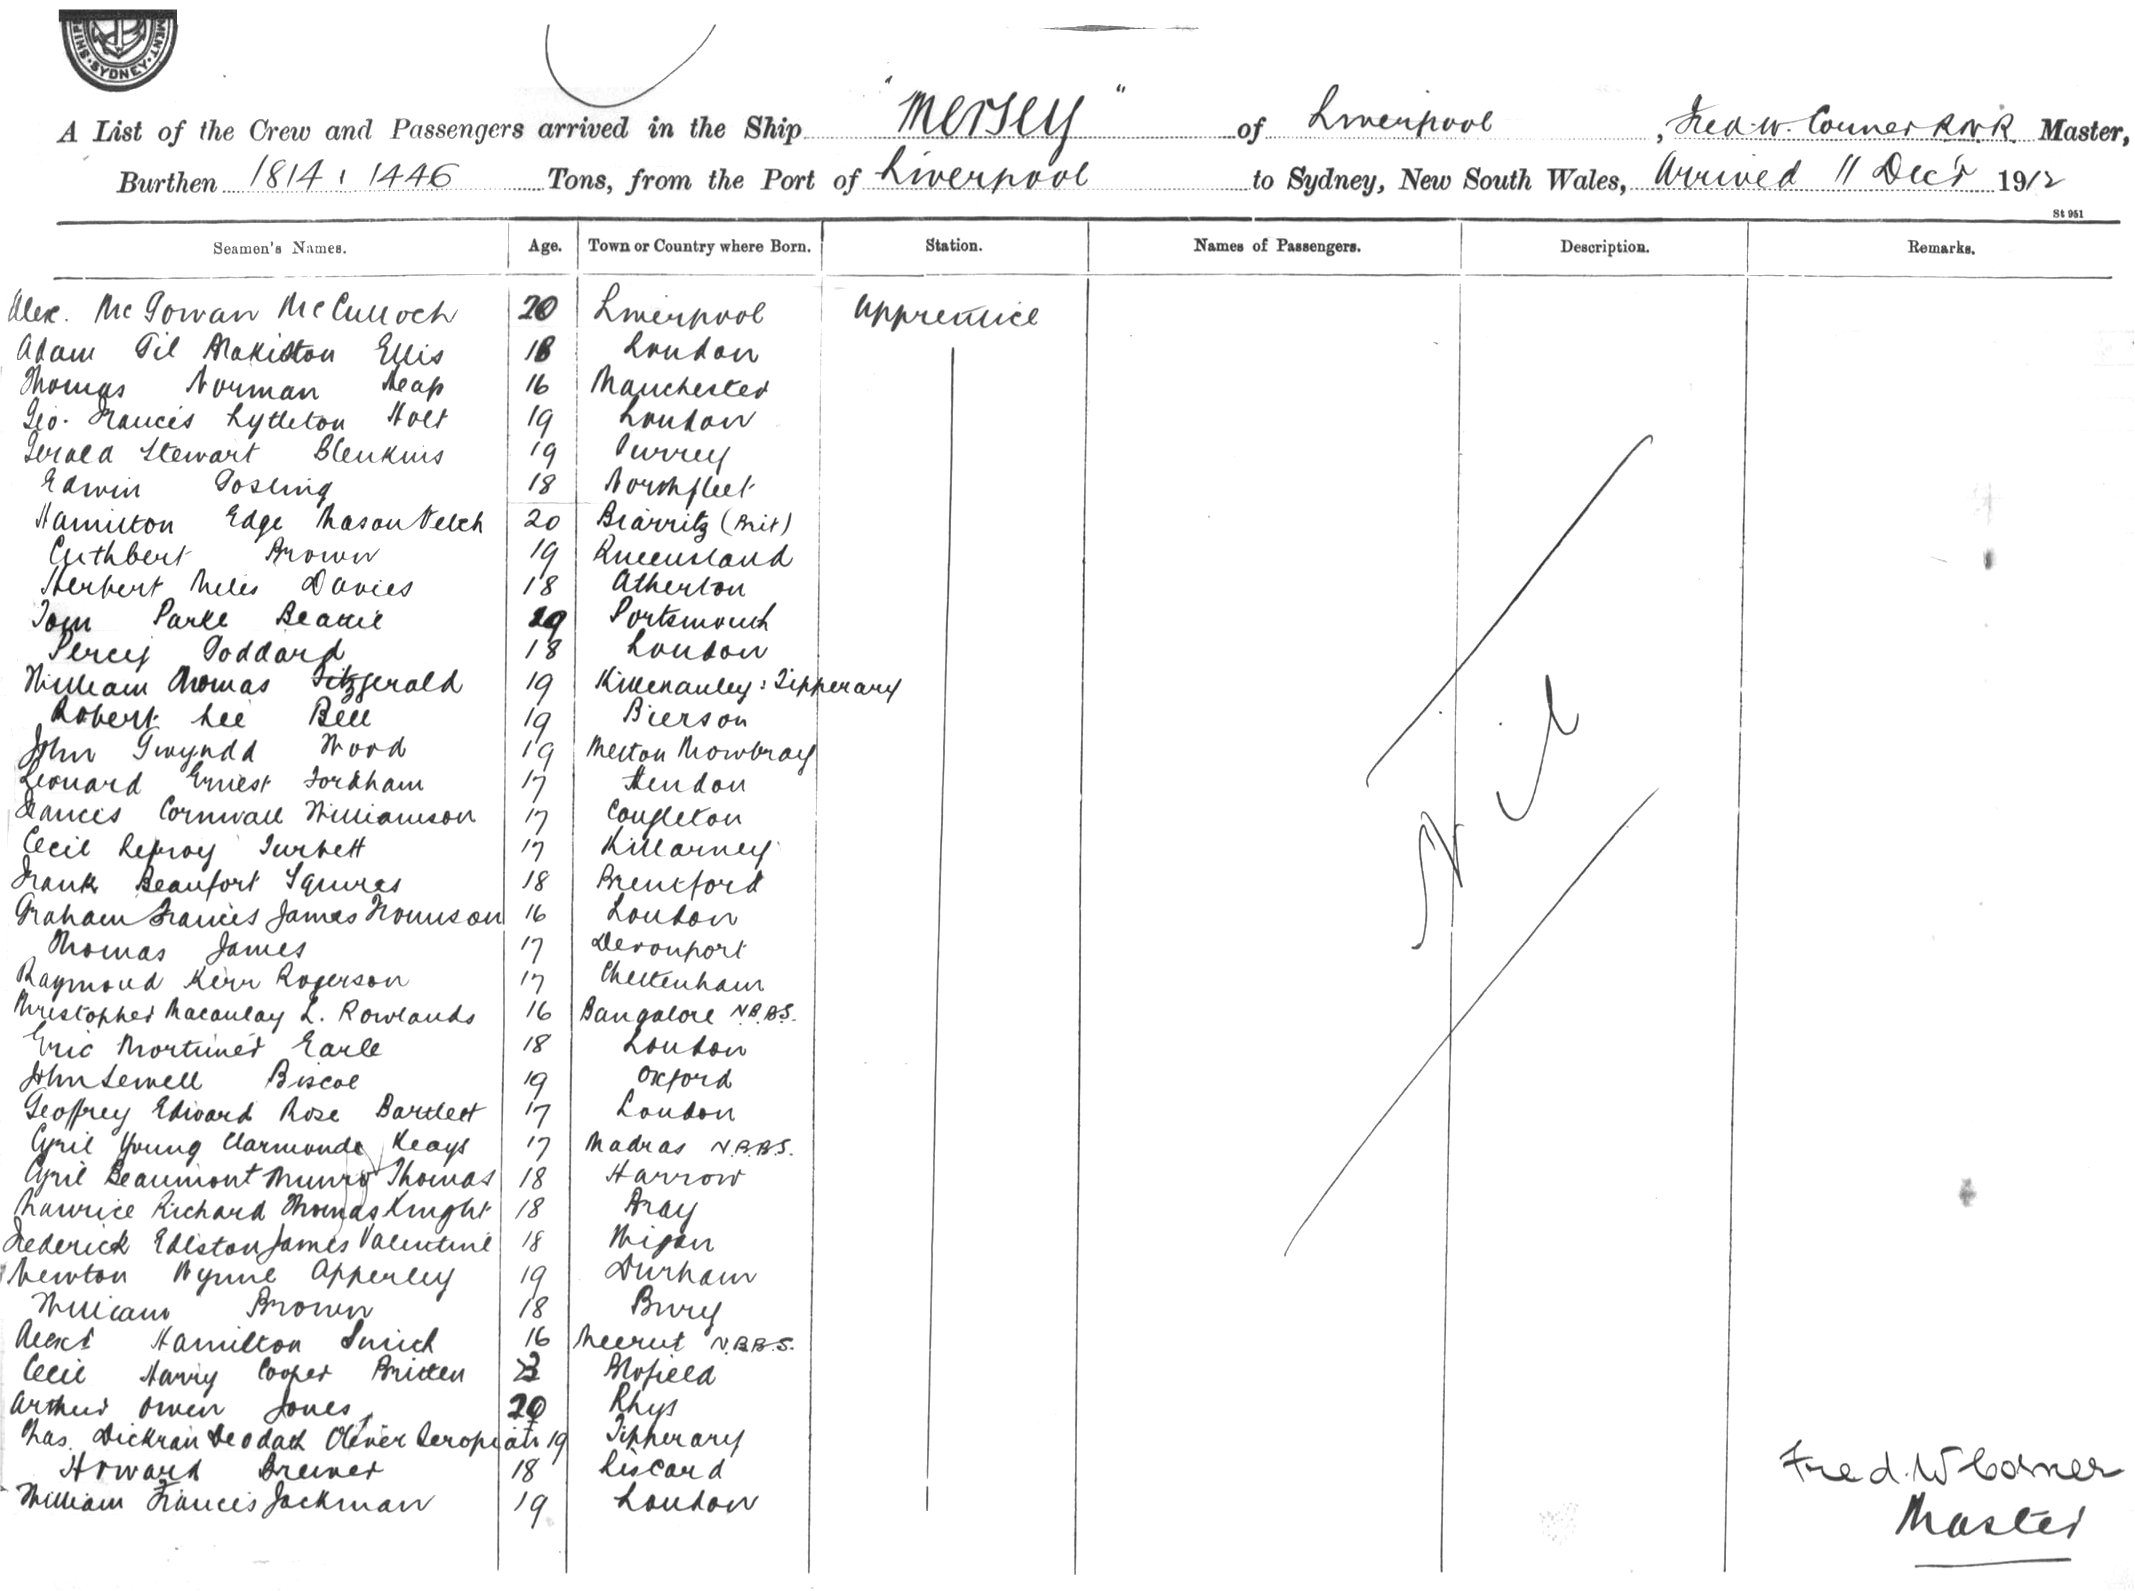 MENT·SHIP
·SYDNEY·
A List of the Crew and Passengers arrived in the Ship "Mersey" of Liverpool, Fred. W. Corner R.N.R. Master,
Burthen 1814, 1446 Tons, from the Port of Liverpool to Sydney, New South Wales, Arrived 11 Decr 1912
St 951
Seamen's Names. Age. Town or Country where Born. Station. Names of Passengers. Description. Remarks.
Alex. McGowan McCulloch 20 Liverpool Apprentice
Adam Ellis 18 London
Thomas Norman Heap 16 Manchester
Geo. Francis Lyttleton Holt 19 London
Gerald Stewart Blenkins 19 Surrey
Edwin Gosling 18 Northfleet
Hamilton Edge Mason Velch 20 Biarritz (Brit)
Cuthbert Brown 19 Queensland
Herbert Miles Davies 18 Atherton
Tom Parke Beattie Portsmouth
Percy Goddard 18 London
William Thomas Fitzgerald 19 Killenauley: Tipperary
Robert Lee Bell 19 Bierson
John Gwyndd Wood 19 Melton Mowbray
Leonard Ernest Fordham 17 Hendon
Francis Cornwall Williamson 17 Congleton
Cecil Lefroy Turbett 17 Killarney
Frank Beaufort Squires 18 Brentford
Graham Francis James 16 London
Thomas James 17 Devonport
Raymond Kerr Rogerson 17 Cheltenham
Christopher Macaulay L. Rowlands 16 Bangalore N.B.B.S.
Eric Mortimer Earle 18 London
John Sewell Biscoe 19 Oxford
Geoffrey Edward Rose Bartlett 17 London
Cyril Young Clarmonde Keays 17 Madras N.B.B.S.
Cyril Beaumont Munro Thomas 18 Harrow
Maurice Richard Thomas Knight 18 Bray
Frederick Edelston James Valentine 18 Wigan
Newton Wynne Apperley 19 Durham
William Brown 18 Bury
Alexr Hamilton Smith 16 Meerut N.B.B.S.
Cecil Harry Cooper Britten Blofield
Arthur Owen Jones 20 Rhys
Chas. Dickran Deodath Oliver Seropian 19 Tipperary
Howard Brewer 18 Liscard
William Francis Jackman 19 London
Nil
Fred. W Corner
Master